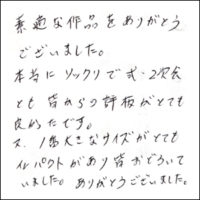 素適な作品をありがとう
ございました。
本当にソックリで式・2次会
とも皆からの評板がとても
良かたです。
又、1番大きなサイズがとても
インパクトがあり皆おどろいて
いました。ありがとうございました。